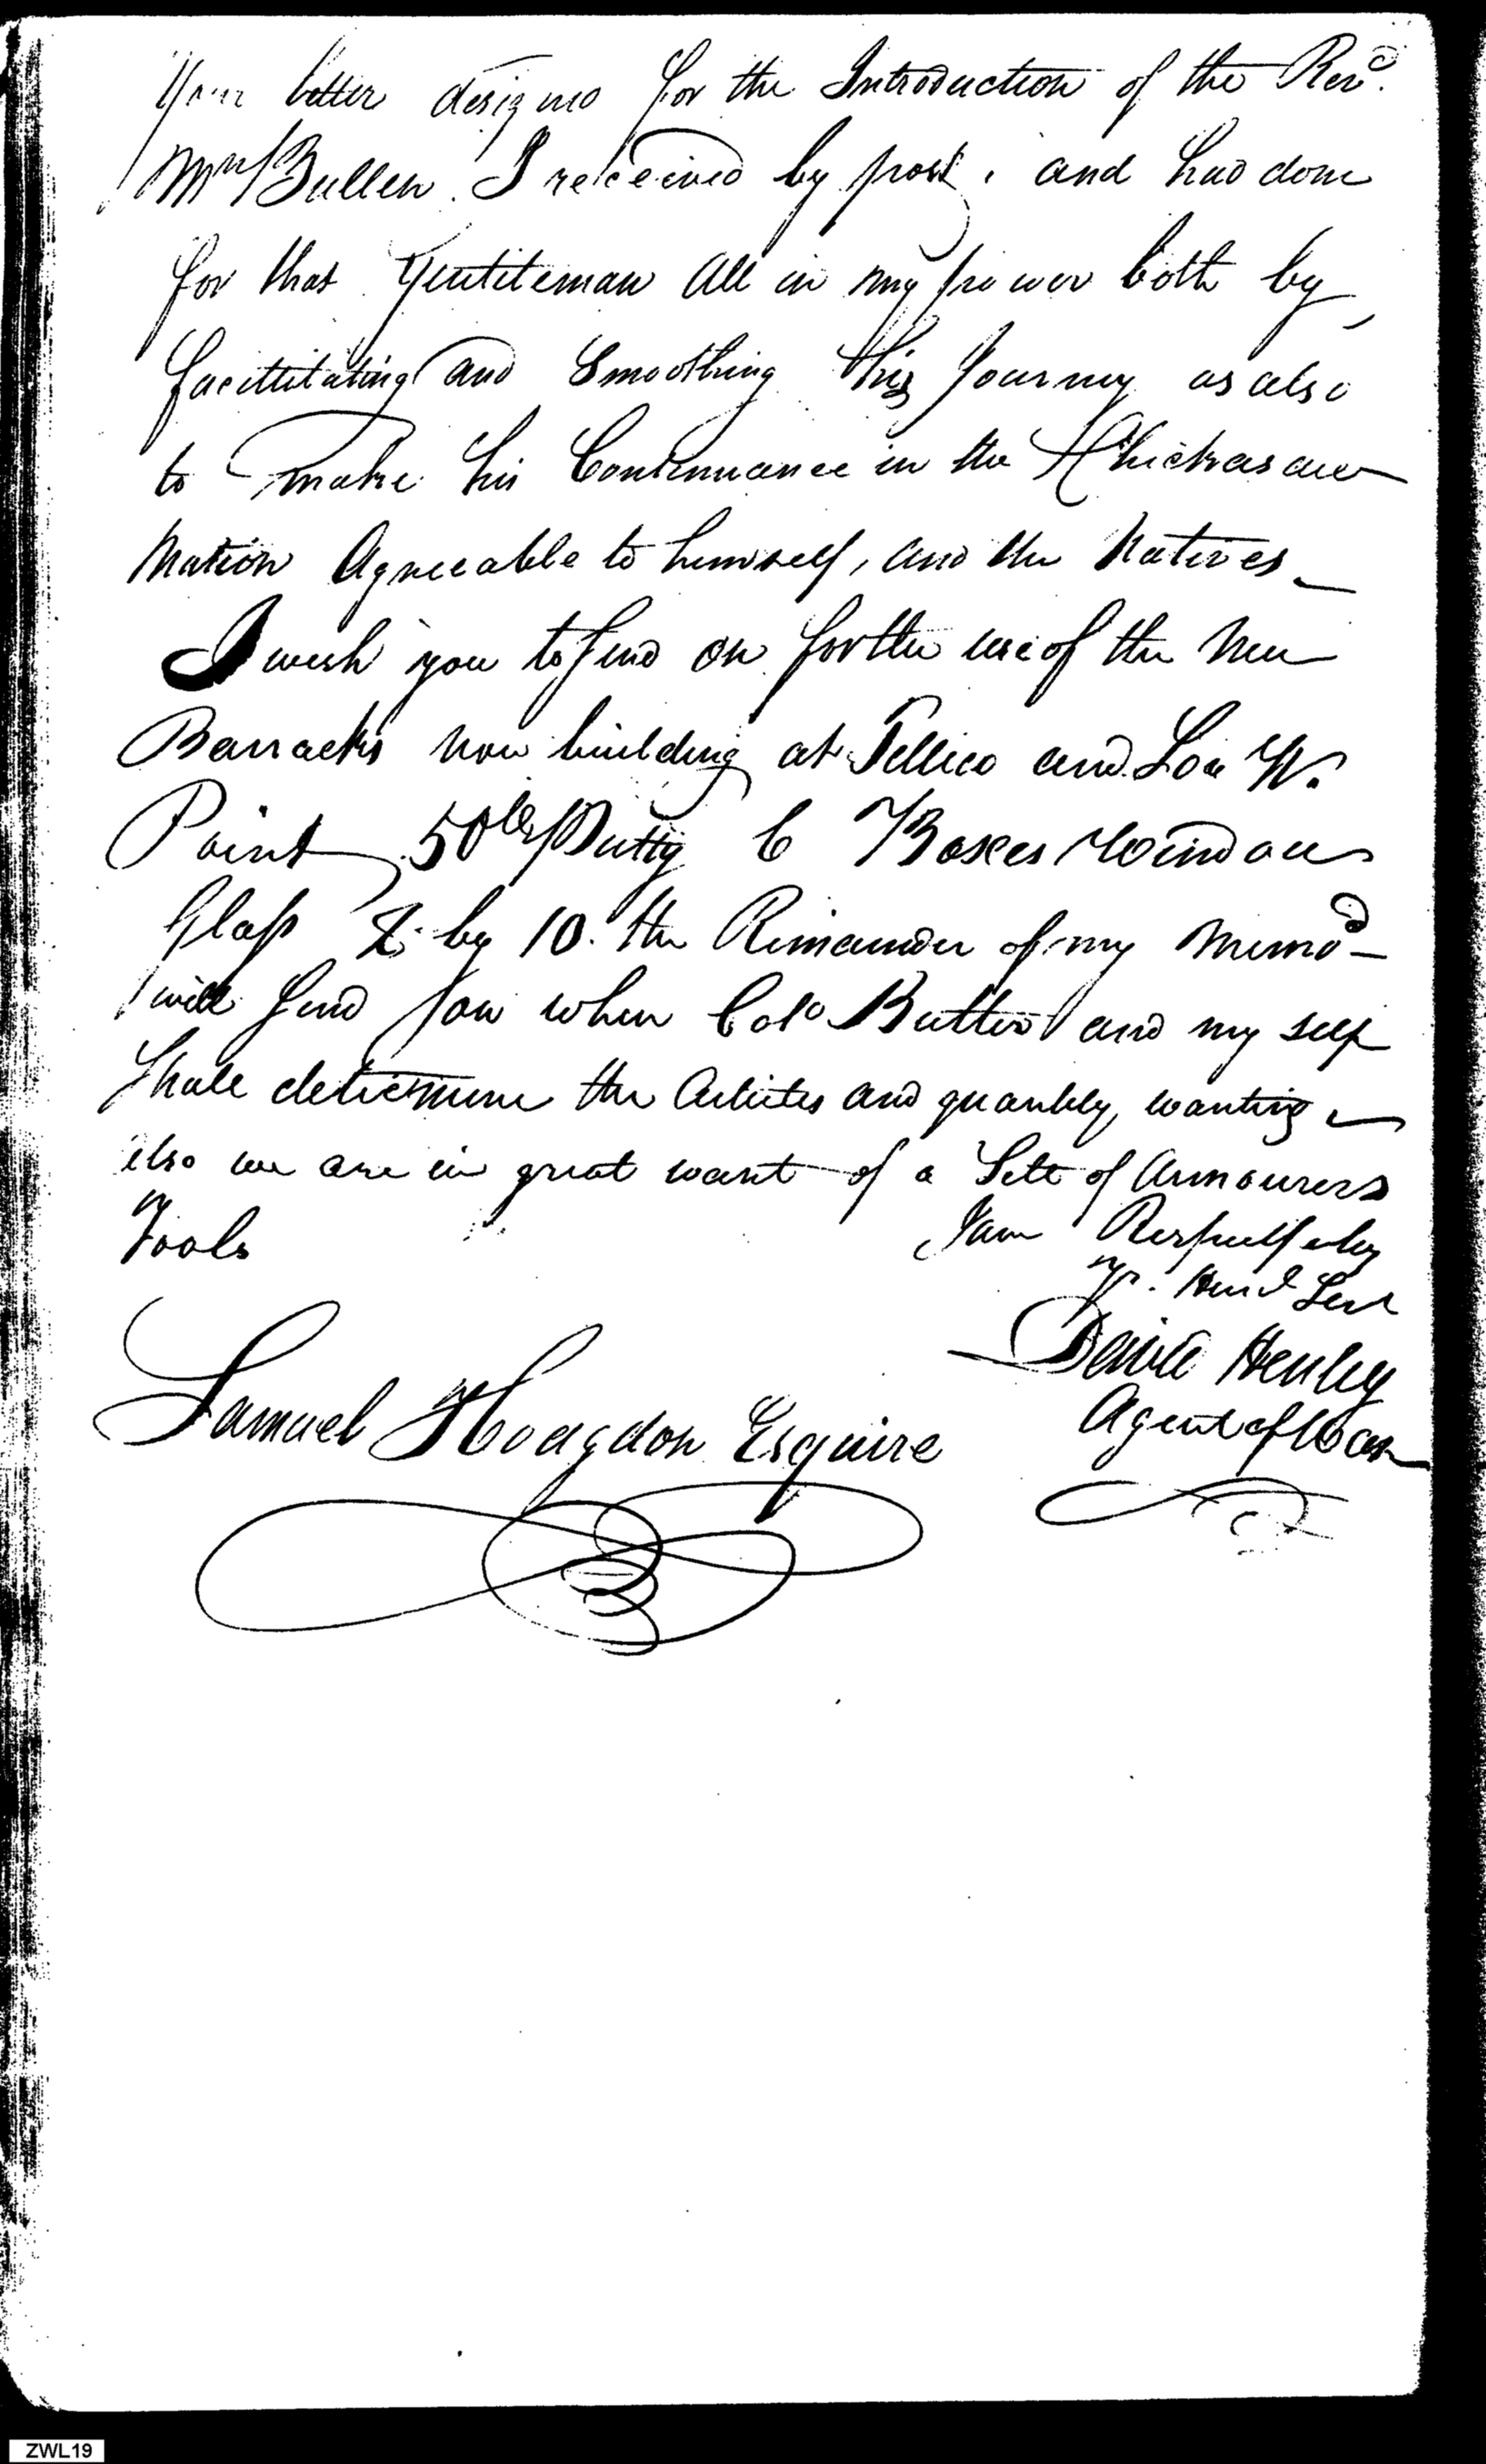 Your letter designed for the Introduction of the Revd.
Mr Bullen I received by post, and had done
for that Gentileman All in my power both by
facittitating and Smoothing His Journey as also
to make his Continuance in the Chickasaw
Nation Agreeable to himself, and the Natives
I wish you to send on for the use of the New
Barracks now building at Tellico and So W.
Point 50lbs Putty 6 Boxes Window
Glass by 10. the Remainder of my Memod
I will send you when Colo Butler and my self
Shall determine the Articles and quantity wanting
also we are in great want of a Sett of Armourers
Tools
I am Respectfully
Yr. Huml Sert
David Henley
Agent of War
Samuel Hodgdon Esquire
ZWL19